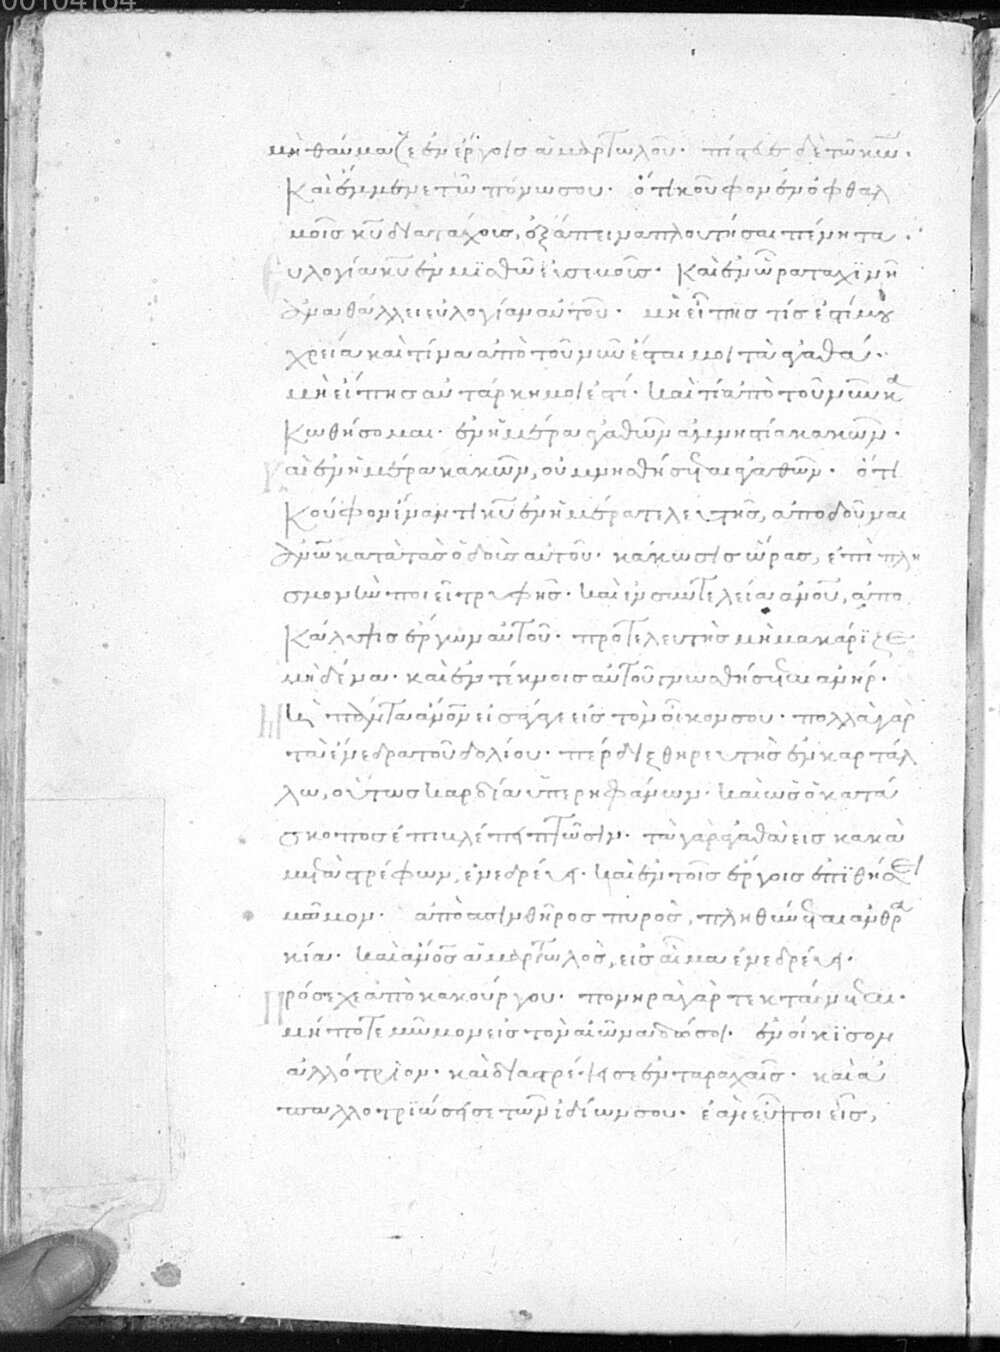 00104164
μὴ θαύμαζε ἐν ἔργοις ἁμαρτωλοῦ· πίστευε δὲ τῶ κω·
Καὶ ἔμμενε τῶ πόνω σου· ὅτι κοῦφον ἐν ὀφθαλ
μοῖς κυ διατάχους, ἐξάπεινα πλουτῆσαι πένητα·
Εὐλογία κυ ἐν μισθῶ εὐσεβοῦς· Καὶ ἐν ὥρα ταχινῆ
ἀναθάλλει εὐλογίαν αὐτοῦ· μὴ εἴπης τίς ἐστί μου
χρεία καὶ τίνα ἀπὸ τοῦ νῦν ἔσται μοι τὰ ἀγαθά·
μὴ εἴπης αὐτάρκη μοι ἐστί· καὶ τί ἀπὸ τοῦ νῦν κα
Κωθήσομαι· ἐν ἡμέρα ἀγαθῶν ἀμνησία κακῶν·
Καὶ ἐν ἡμέρα κακῶν, οὐ μνησθήσεται ἀγαθῶν· ὅτι
Κοῦφον ἔναντι κυ ἐν ἡμέρα τελευτῆς, ἀποδοῦναι
ἀνω κατὰ τὰς ὁδοὺς αὐτοῦ· κάκωσις ὥρας, ἐπιλη
σμονὴν ποιεῖ τρυφῆς· καὶ ἐν συντελεία ανου, ἀπο
Κάλυψις ἔργων αὐτοῦ· πρὸ τελευτῆς μὴ μακάριζε
μηδένα· καὶ ἐν τέκνοις αὐτοῦ γνωσθήσεται ἀνήρ·
Μὴ πάντα ανον εἴσαγε εἰς τὸν οἶκον σου· πολλὰ γὰρ
τὰ ἔνεδρα τοῦ δολίου· πέρδιξ θηρευτὴς ἐν καρτάλ
λω, οὕτως καρδία ὑπερηφάνων· καὶ ὡς ὁ κατά
σκοπος ἐπιβλέπει πτῶσιν· τὰ γὰρ ἀγαθὰ εἰς κακὰ
μεταστρέφων, ἐνεδρεύει· καὶ ἐν τοῖς ἔργοις ἐπιθήσει
μῶμον· ἀπὸ σπινθῆρος πυρὸς, πληθύνεται ἀνθρα
κία· καὶ ανος ἁμαρτωλὸς, εἰς αἷμα ἐνεδρεύει·
Πρόσεχε ἀπὸ κακούργου· πονηρὰ γὰρ τεκταίνεται·
μήποτε μῶμον εἰς τὸν αἰῶνα δώσοι· ἐνοίκισον
ἀλλότριον· καὶ διαστρέψει σε ἐν ταραχαῖς· καὶ ἀ
παλλοτριώσει σε τῶν ἰδίων σου· ἐὰν εὖ ποιεῖς,